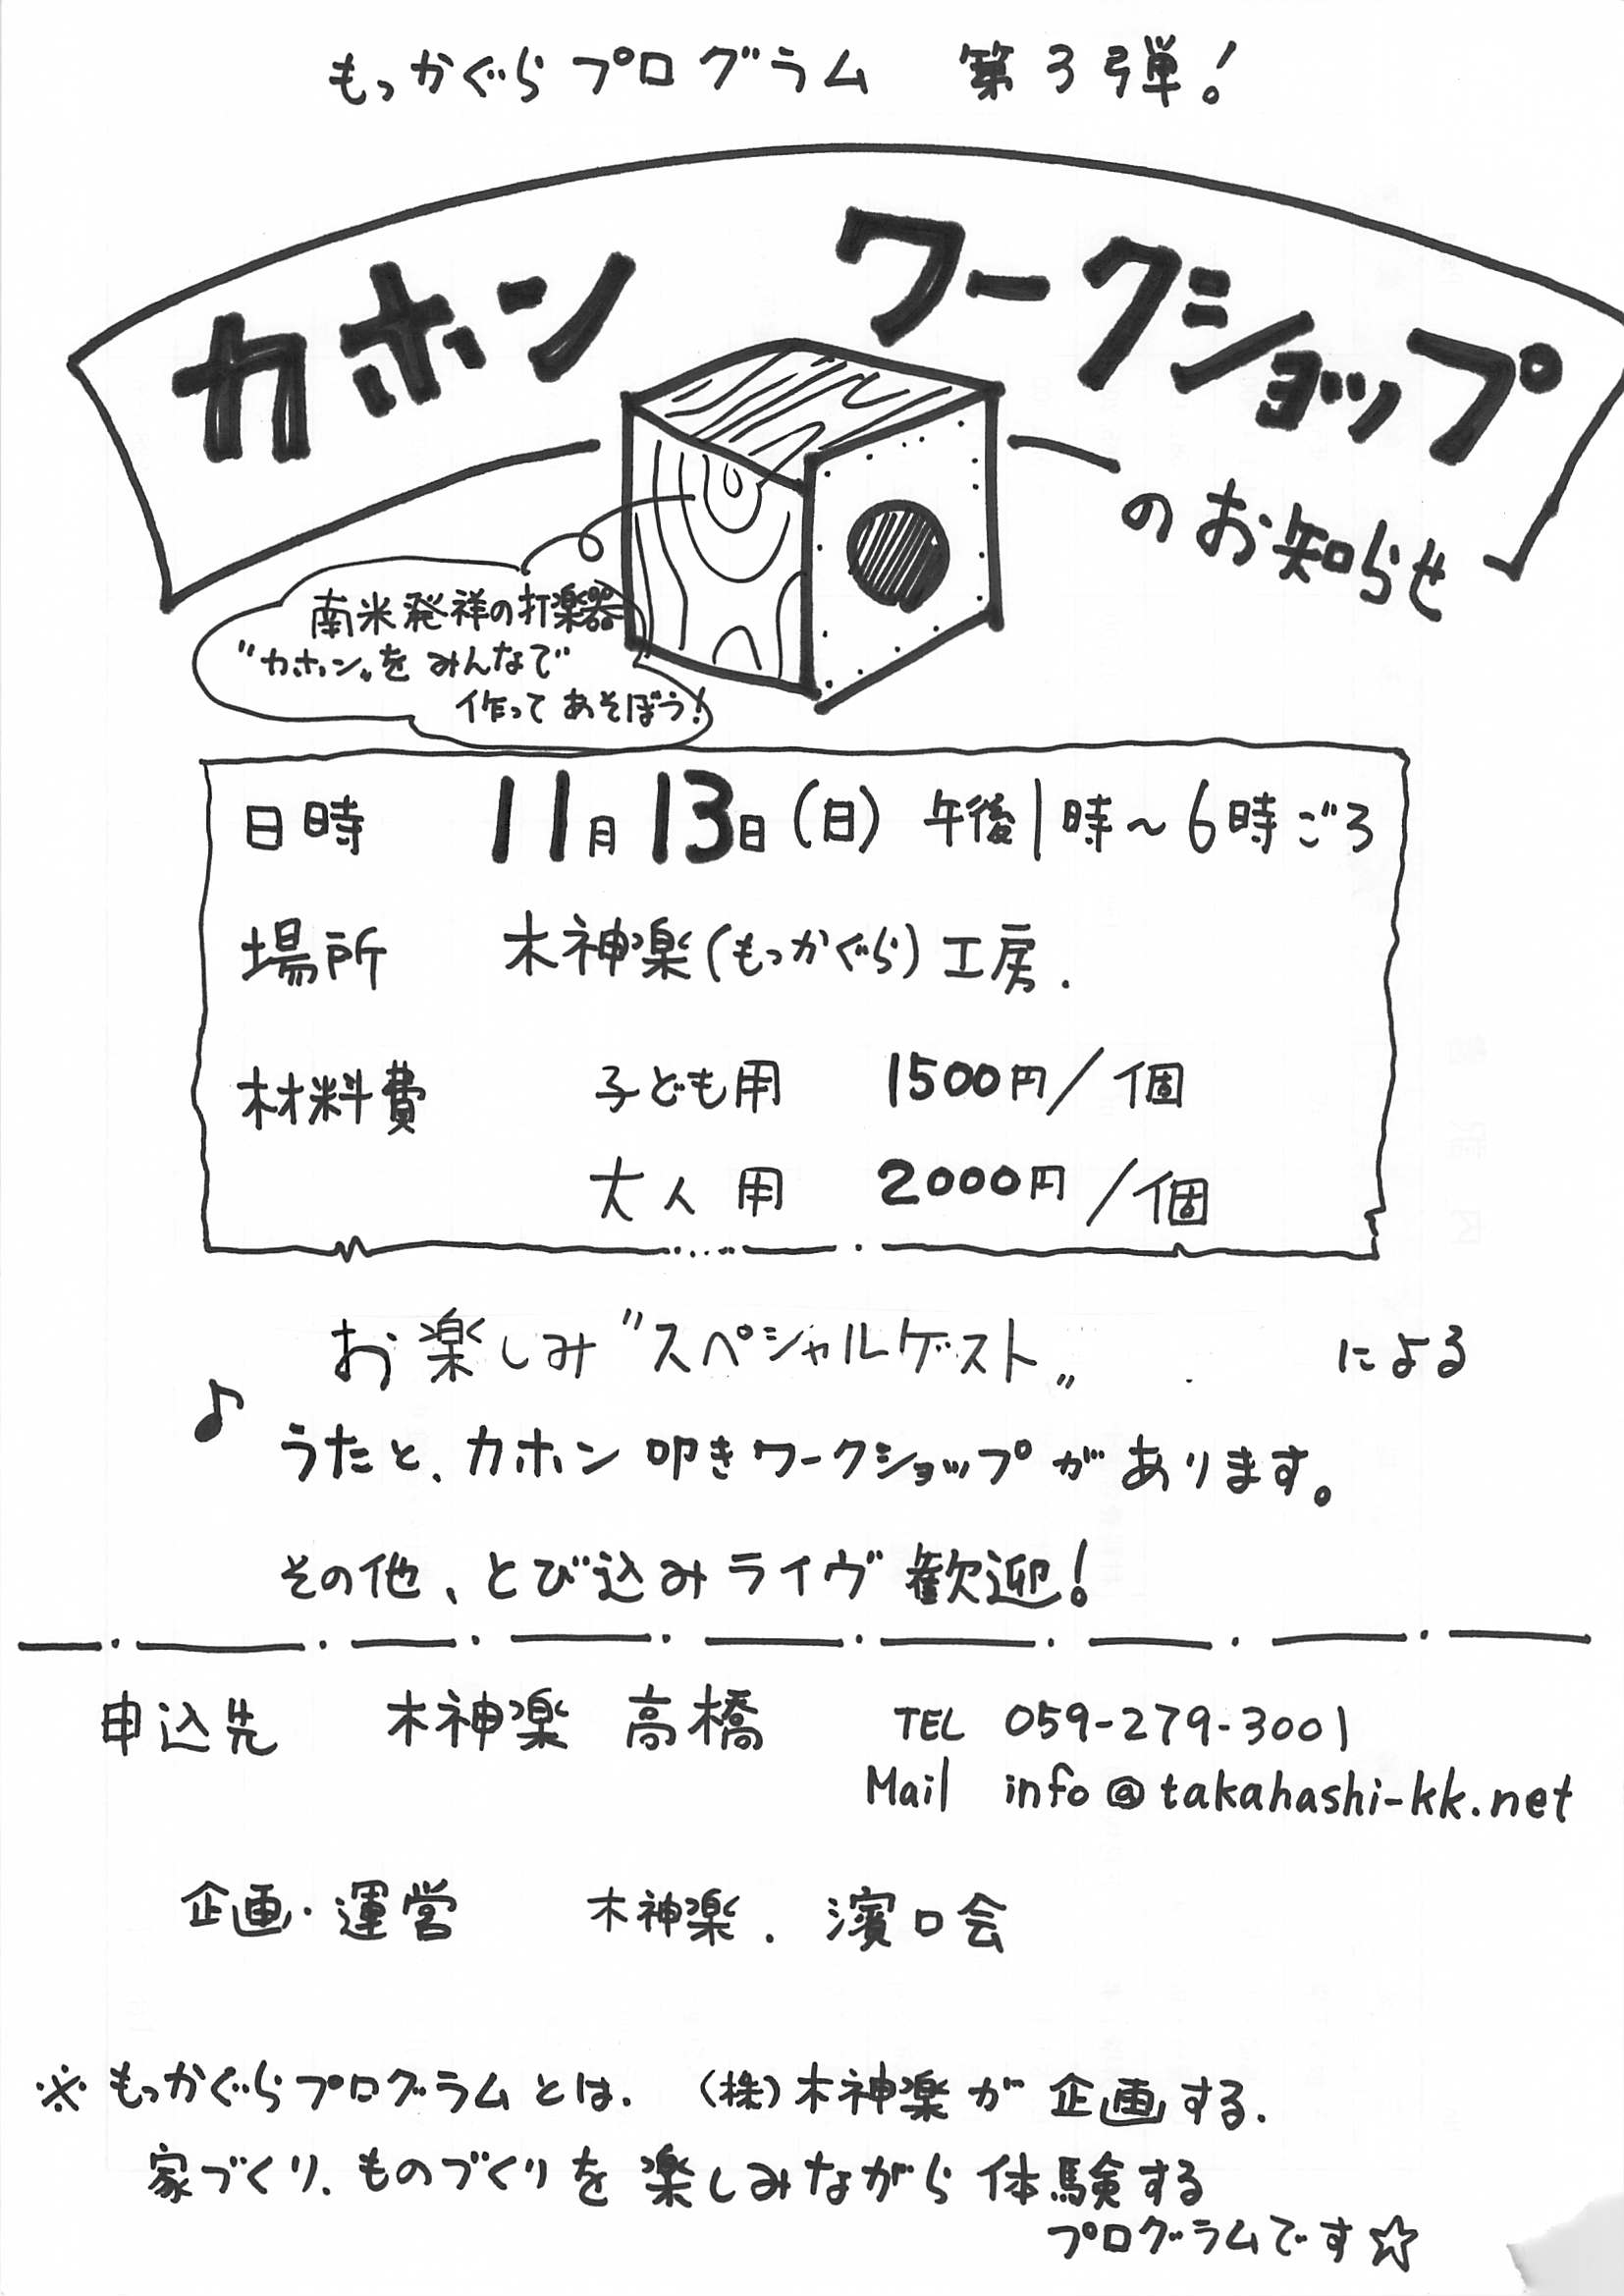 もっかぐらプログラム 第3弾!
カホン ワークショップ
のお知らせ
南米発祥の打楽器
〝カホン〟を みんなで
作って あそぼう!
日時 11月13日(日) 午後1時~6時ごろ
場所 木神楽(もっかぐら)工房.
材料費 子ども用 1500円/個
大人用 2000円/個
お楽しみ〝スペシャルゲスト〟 による
♪ うたと、カホン 叩きワークショップが あります。
その他、とび込みライヴ 歓迎!
申込先 木神楽 高橋 TEL 059-279-3001
Mail info@takahashi-kk.net
企画・運営 木神楽. 濱口会
※ もっかぐらプログラムとは、(株)木神楽が 企画する、
家づくり、ものづくりを 楽しみながら 体験する
プログラムです☆